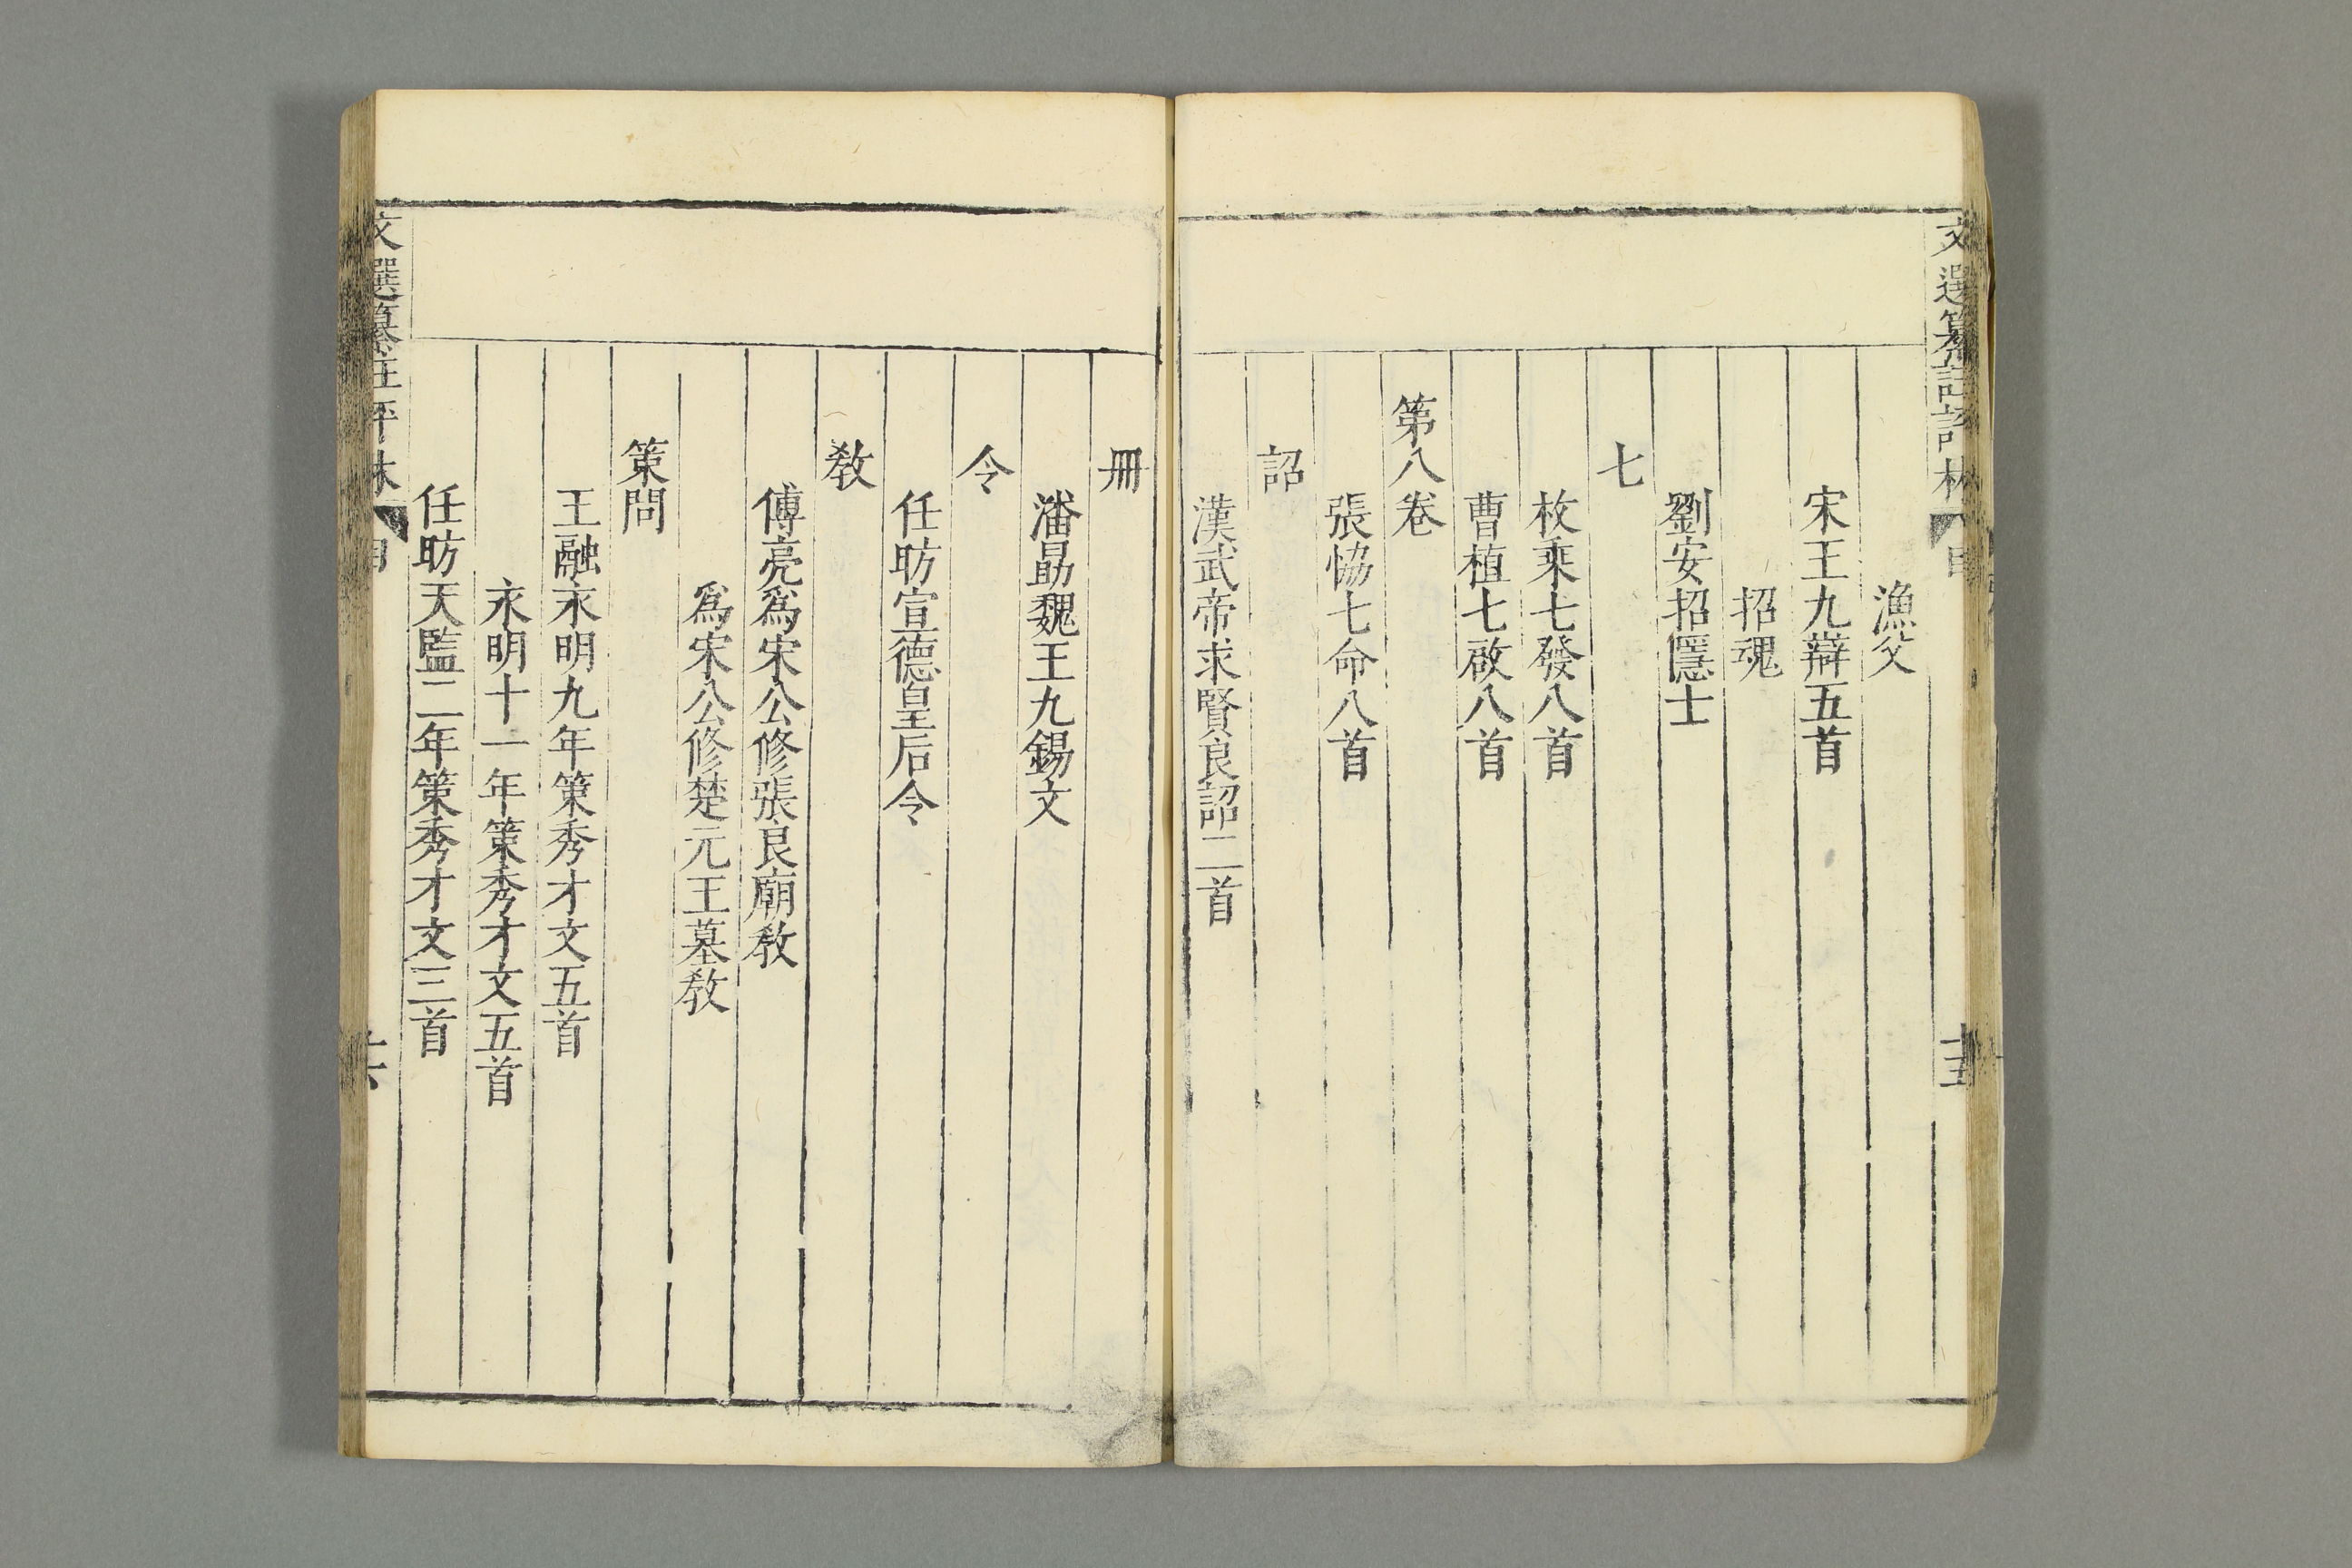 文選纂註評林
目
十五
漁父
宋王九辯五首
招魂
劉安招隱士
七
枚乘七發八首
曹植七啟八首
第八卷
張恊七命八首
詔
漢武帝求賢良詔二首
冊
潘勗魏王九錫文
令
任昉宣德皇后令
敎
傅亮爲宋公修張良廟敎
爲宋公修楚元王墓敎
策問
王融永明九年策秀才文五首
永明十一年策秀才文五首
任昉天監二年策秀才文三首
文選纂註評林
目
十六